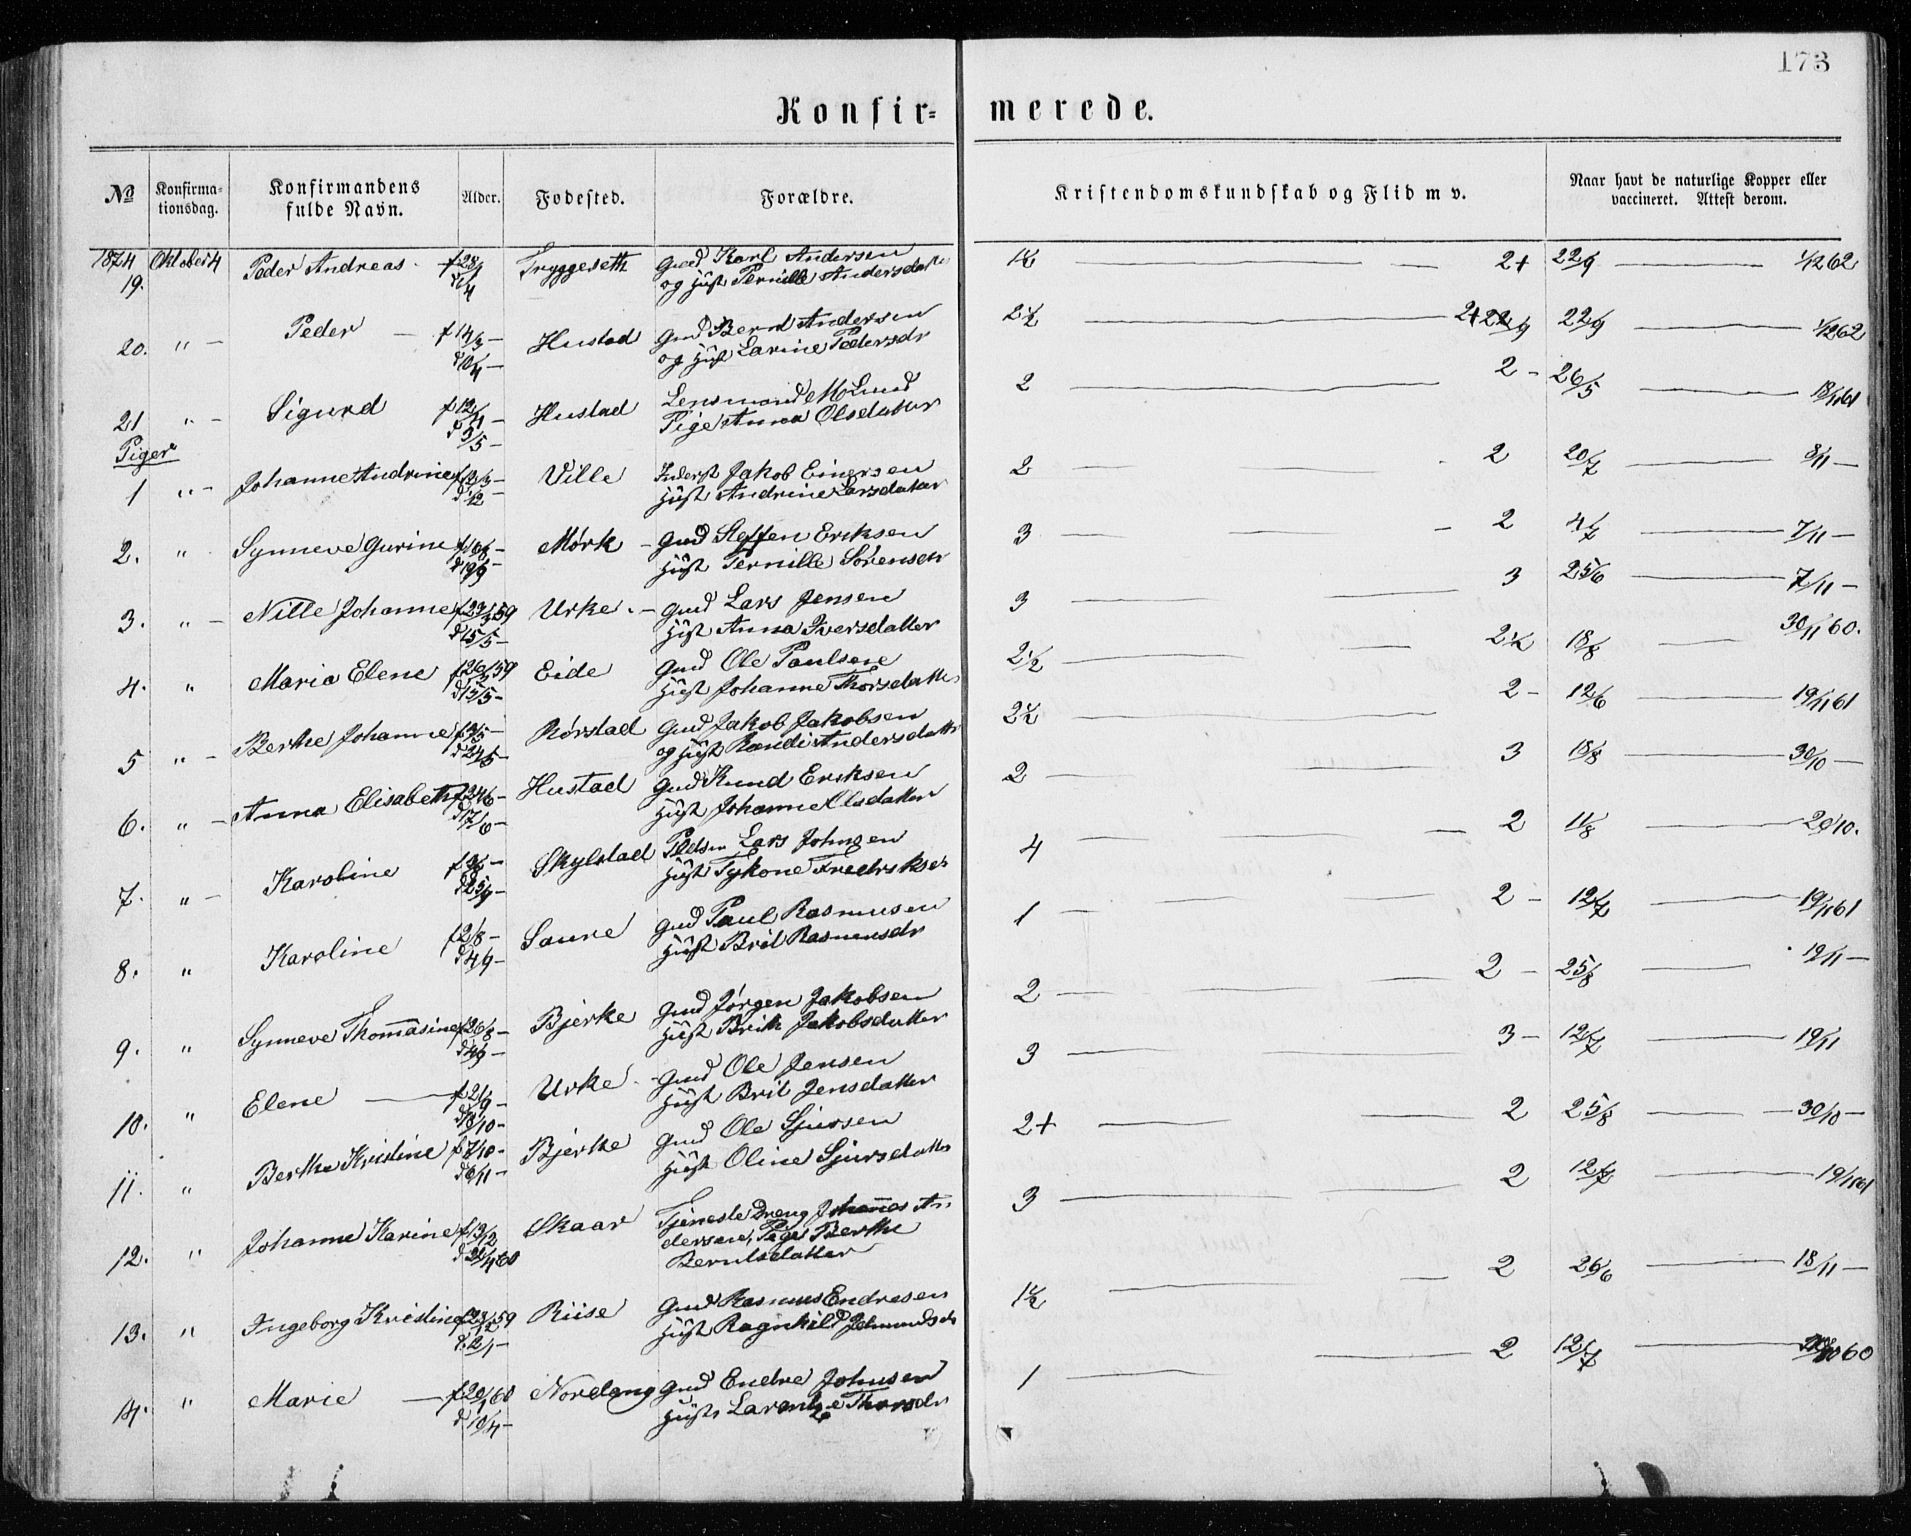 173
Konfir= merede.
№ Konfirma-tionsdag. Konfirmandens fulde Navn. Alder. Fødested. Forældre. Kristendomskundskab og Flid m v. Naar havt de naturlige Kopper eller vaccineret. Attest derom.
1874 Oktober 4
19. Peder Andreas Tryggeseth Gmd Karl Andersen 1½ 2+ 22/9 62
og Hust Pernille Andersdatter
20. " Peder f 14/3 Hustad Gmd Bernt Andersen 2½ 2+ 22/9 62
og Hust Larine Pedersdr
21 " Sigurd f 12/4 Hustad Lensmand M Lund 2 2 - 26/5
d 3/5 Pige Anna Olsdatter
Piger
1 " Johanne Andrine Ville Inderst Jakob Einersen 2 2 20/7 8/11
Hust Andrine Larsdatter
2. " Synneve Gurine Mørk Gmd Steffen Eriksen 3 2 4/7 7/11
Hust Pernille Sørensdr
3. " Nille Johanne f 23/3 59 Urke Gmd Lars Jensen 3 3 25/6 7/11
d 15/5 Hust Anna Iversdatter
4. " Maria Elene f 26/3 59 Eide Gmd Ole Paulsen 2½ 2½ 18/8 30/11 60.
d 15/5 Hust Johanne Thorsdatter
5 " Berthe Johanne Rørstad Gmd Jakob Jakobsen 2½ 2 - 12/6 19/11 61
og Hust Randi Andersdatter
6. " Anna Elisabeth f 24/6 Hustad Gmd Knud Eriksen 2 3 18/8 30/10
d 17/6 Hust Johanne Olsdatter
7. " Karoline Skylstad Pladsm Lars Johnsen 4 2 11/8 29/10.
d 25/9 Hust
8. " Karoline f 2/8 Saure Gmd Paul Rasmusen 1 2 - 12/7 19/11 61
d 4/9 Hust Brit Rasmusdr
9. " Synneve Thomasine f 26/8 Bjerke Gmd Jørgen Jakobsen 2 2 - 25/8 19/11
d 4/9 Hust Brite Jakobsdatter
10. " Elene f 21/9 Urke Gmd Ole Jensen 3 3 - 12/7 19/11
d 8/10 Hust Brit Jensdatter
11. " Berthe Kristine f 7/10 Bjerke Gmd Ole Sjursen 2+ 2 25/8 30/10
d 6/11 Hust Oline Sjursdatter
12. " Johanne Karine f 13/12 Skaar Tjeneste Dreng Johannes An- 3 2 12/7 19/11 61
dersen, Pige Berthe
Berntsdatter
13. " Ingeborg Kristine 59 Riise Gmd Rasmus Endresen 1½ 2 26/6 18/11
d. 2/1 Hust Ragnhild
14. " Marie f 20/1 60 Nordang Gmd Endre Johnsen 1 2 12/7 60
d 10/4 Hust Larentze Thorsdr